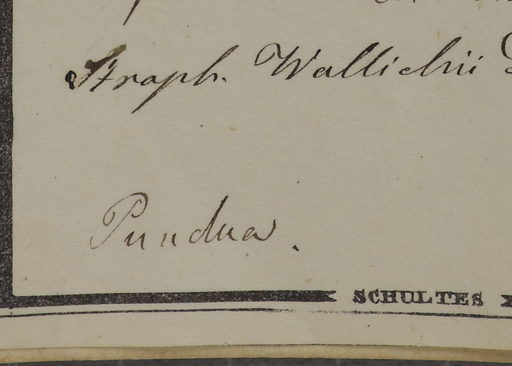 Straph. Wallichii
Pundua.
SCHULTES